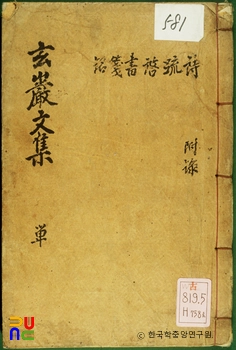 581
玄巖文集
單
詩疏啓書箋銘
附錄
古
819.5
H 958ㅎ
ⓒ 한국학중앙연구원